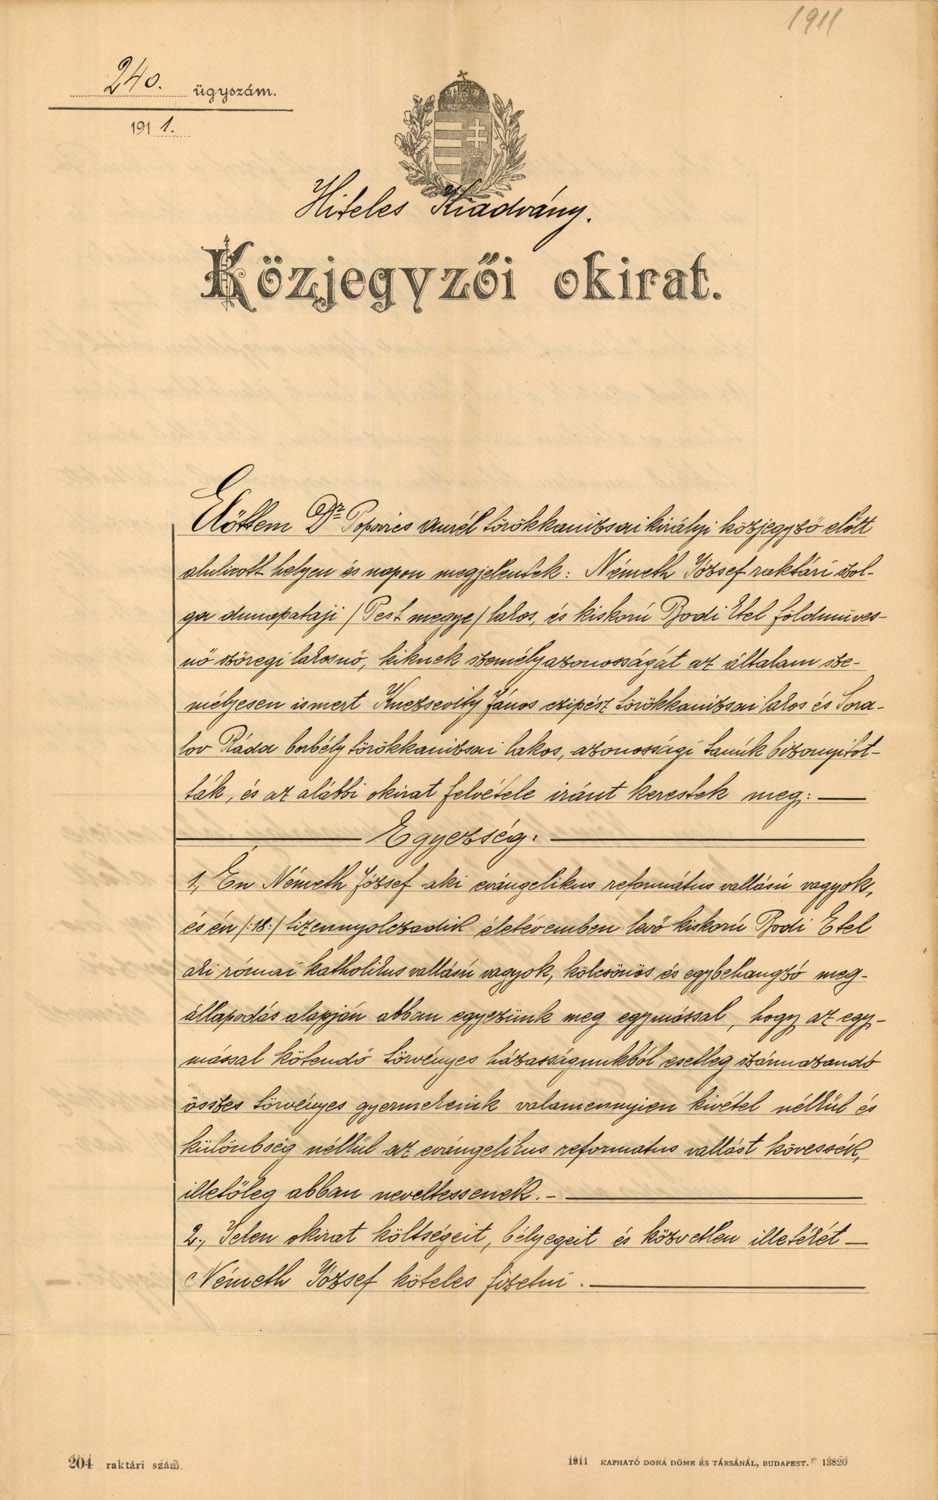 1911
240. ügyszám.
191 1.
Hiteles Kiadvány.
Közjegyzői okirat.
Előttem Dr. Popovics Aurél törökkanizsai királyi közjegyző előtt
alulirott helyen és napon megjelentek: Németh József raktári szol-
ga dunapataji /Pest megye/ lakos, és kiskorú Bodi Etel földmüves-
nő szöregi lakosnő, kiknek személyazonosságát az általam sze-
mélyesen ismert Knezsevity János czipész törökkanizsai lakos és
lov Ráda borbély törökkanizsai lakos, azonossági tanúk bizonyitot-
ták, és az alábbi okirat felvétele iránt kerestek meg:
Egyezség:
1, Én Németh József aki evángelikus református vallású vagyok,
és én /:18:/ tizennyolczadik életévemben levő kiskorú Bodi Etel
aki római katholikus vallású vagyok, kölcsönös és egybehangzó meg-
állapodás alapján abban egyezünk meg egymással, hogy az egy-
mással kötendő törvényes házasságunkból esetleg származandó
összes törvényes gyermekeink valamennyien kivétel nélkül és
különbség nélkül az evángelikus reformatus vallást kövessék,
illetőleg abban neveltessenek. -
2., Jelen okirat költségeit, bélyegeit és közvetlen illetékét
Németh József köteles fizetni.
204 raktári szám.
1911 KAPHATÓ DONÁ DÖME ÉS TÁRSÁNÁL, BUDAPEST. 13820